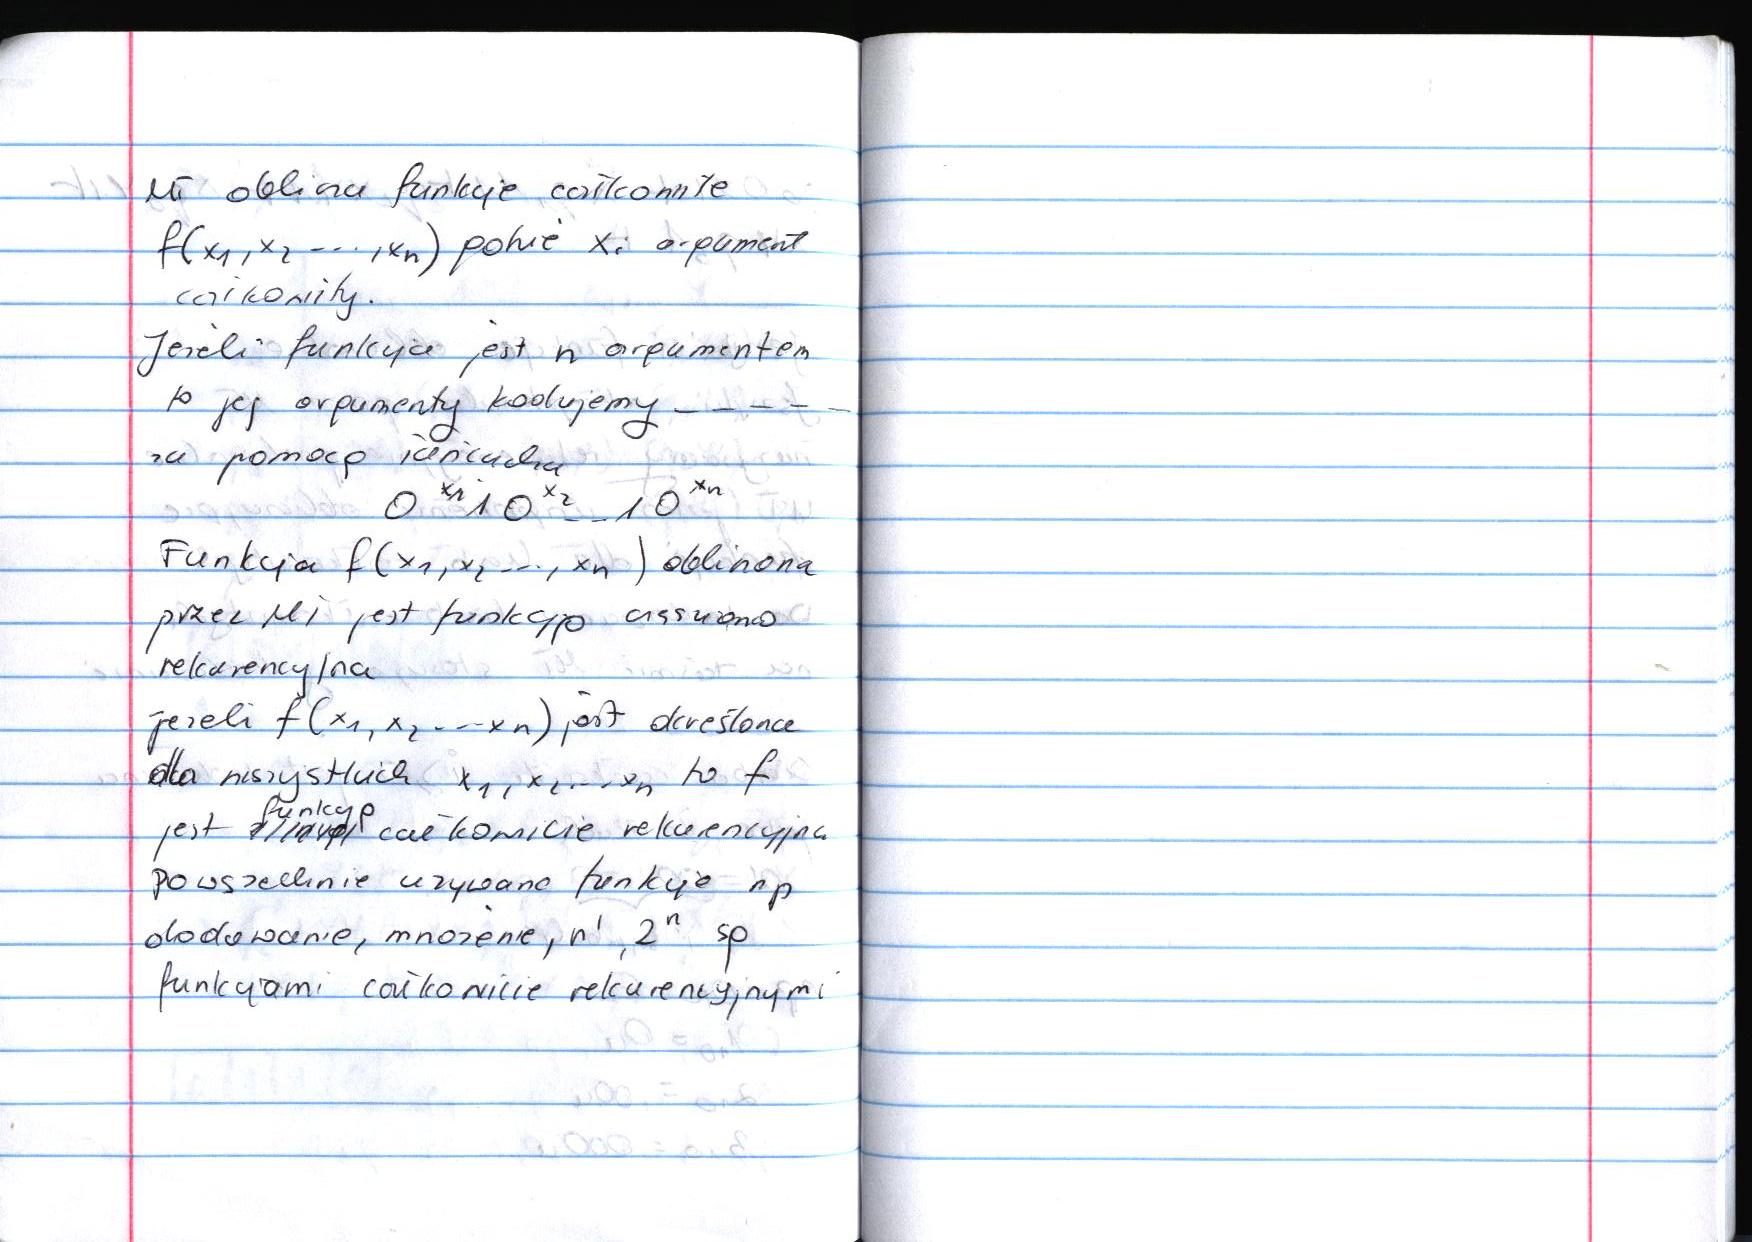 MT oblicza funkcje całkowite
f(x₁, x₂ ---, xₙ) gdzie xᵢ argument
całkowity.
Jeżeli funkcja jest n argumentem
to jej argumenty kodujemy _ _ _ _ _
za pomocą łańcucha
0^x₁ 1 0^x₂ _ _ 1 0^xₙ
Funkcja f(x₁, x₂ --., xₙ) obliczona
przez MT jest funkcją częściowo
rekurencyjna
jeżeli f(x₁, x₂ --- xₙ) jest określona
dla wszystkich x₁, x₂ ... xₙ to f
jest funkcją całkowicie rekurencyjna
Powszechnie używane funkcje np
dodawanie, mnożenie, n!, 2ⁿ są
funkcjami całkowicie rekurencyjnymi